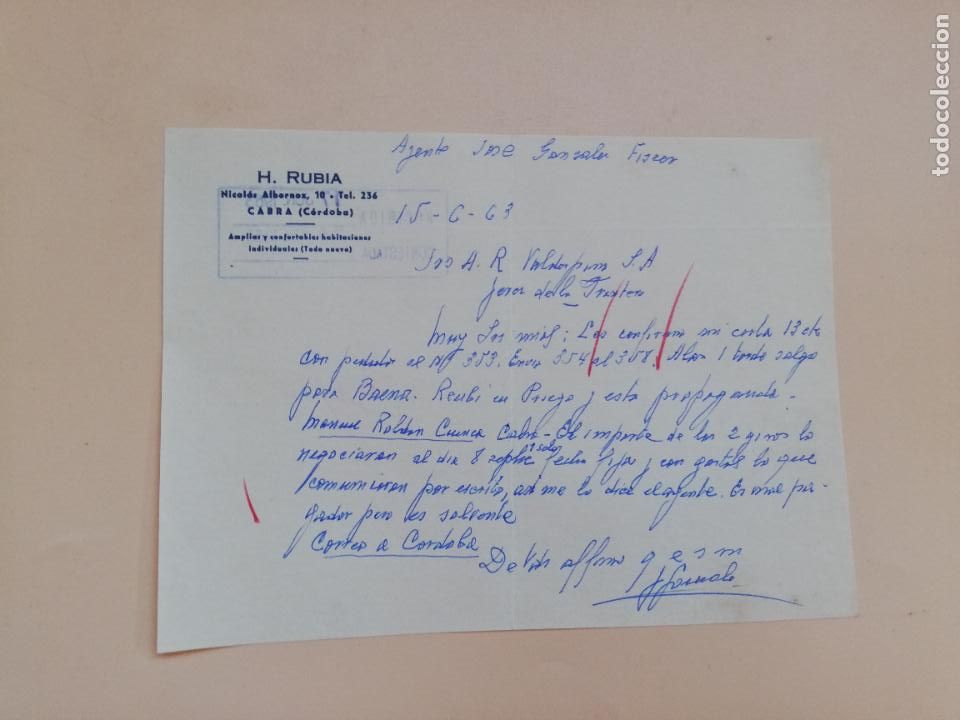 Agente Jose Gonzalez
H. RUBIA
Nicolás Albornoz, 10 - Tel. 236
CABRA (Córdoba)
Amplias y confortables habitaciones
individuales (Todo nuevo)
15-6-63
Srs A. R Valdespino S.A
Jerez de la Frontera
Muy Srs mios: Les confirmo mi carta 13 cte
con pedido al Nº 353. Envio 354 al 358. A las 1 tarde salgo
para Baena. Recibi en Priego y esta propaganda.
Manuel Roldan Cuenca Cabra - El importe de los 2 giros lo
negociaran al dia 8 sepbre fecha fija y con gastos lo que
comunicaran por escrito, asi me lo dice el agente. Es mal pa-
gador pero es solvente
Correo a Cordoba
De Vds affmo q e s m
J Gonzalez
todocoleccion